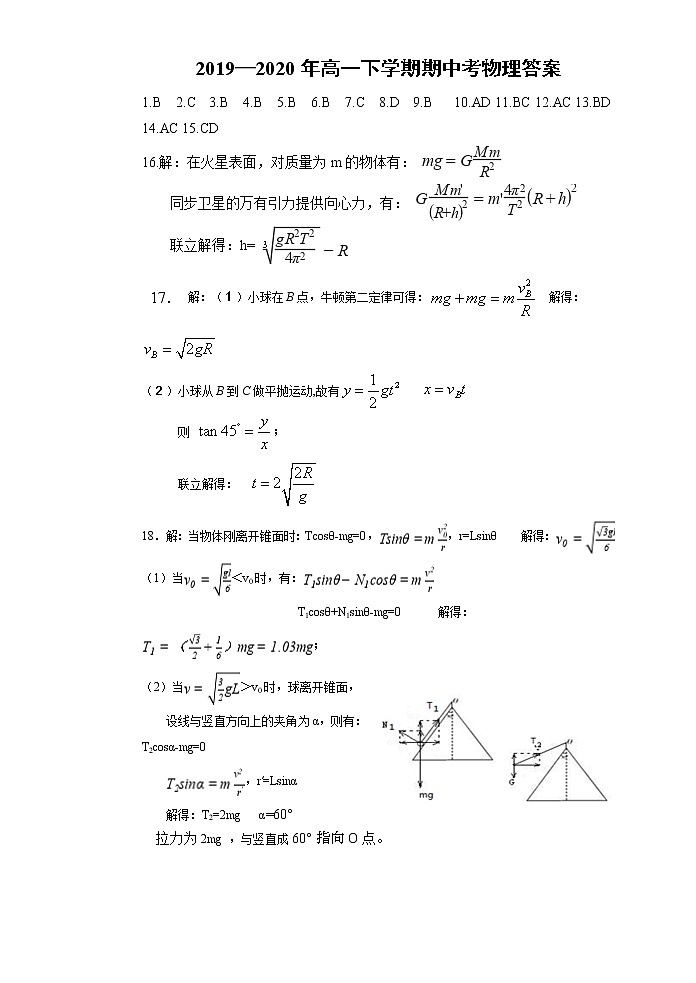 2019—2020 年高一下学期期中考物理答案
1.B 2.C 3.B 4.B 5.B 6.B 7.C 8.D 9.B 10.AD 11.BC 12.AC 13.BD
14.AC 15.CD
16.解：在火星表面，对质量为 m 的物体有： mg = G\frac{Mm}{R^2}
同步卫星的万有引力提供向心力，有： G\frac{Mm'}{(R+h)^2} = m'\frac{4π^2}{T^2}(R+h)^2
联立解得：h= \sqrt[3]{\frac{gR^2T^2}{4π^2}} − R
17． 解：（1）小球在 B 点，牛顿第二定律可得：mg + mg = m\frac{v_B^2}{R} 解得：
v_B = \sqrt{2gR}
（2）小球从 B 到 C 做平抛运动,故有 y = \frac{1}{2}gt^2 x = v_B t
则 tan 45° = \frac{y}{x}；
联立解得： t = 2\sqrt{\frac{2R}{g}}
18．解：当物体刚离开锥面时：Tcosθ-mg=0，Tsinθ = m\frac{v_0^2}{r}，r=Lsinθ 解得：v_0 = \sqrt{\frac{\sqrt{3}gl}{6}}
（1）当v_0 = \sqrt{\frac{gl}{6}}＜v₀时，有：T_1sinθ − N_1cosθ = m\frac{v^2}{r}
T₁cosθ+N₁sinθ-mg=0 解得：
T_1 = （\frac{\sqrt{3}}{2} + \frac{1}{6}）mg = 1.03mg；
（2）当v = \sqrt{\frac{3}{2}gL}＞v₀时，球离开锥面，
设线与竖直方向上的夹角为 α，则有：
T₂cosα-mg=0
T_2sinα = m\frac{v^2}{r'}，r′=Lsinα
解得：T₂=2mg α=60°
拉力为 2mg ，与竖直成 60° 指向 O 点。
T₁
N₁
mg
T₂
G